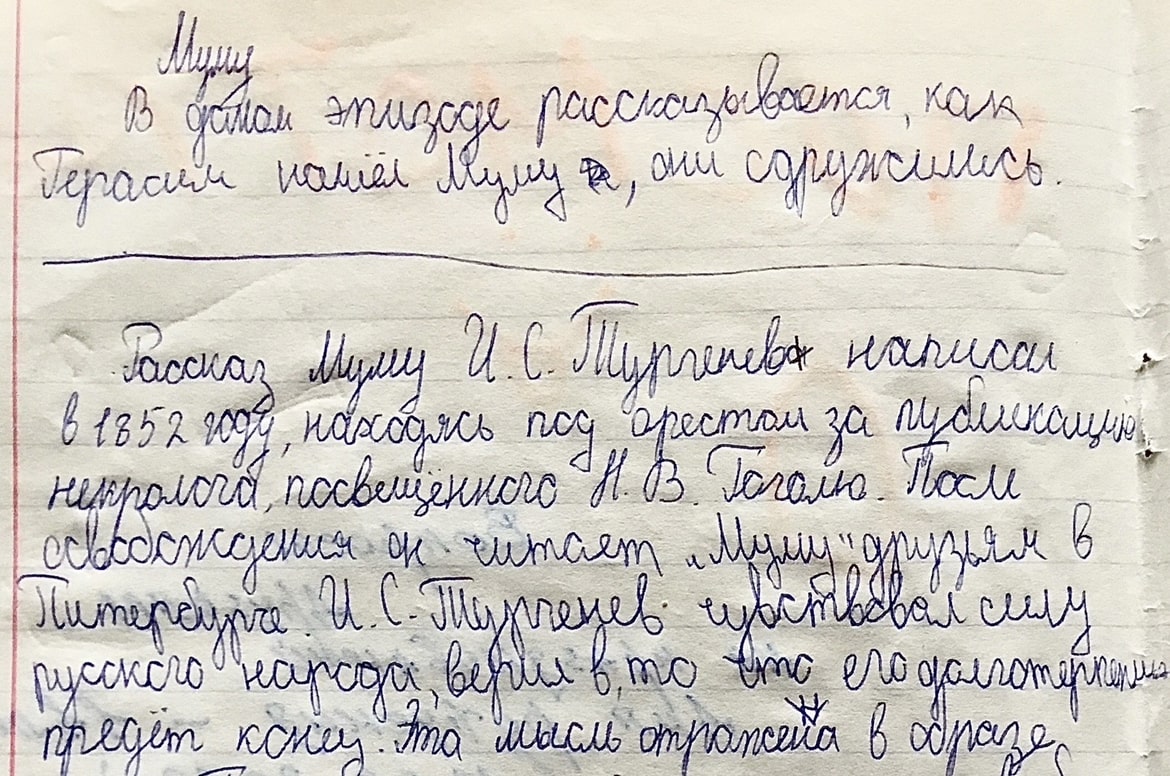 Муму
В даном эпизоде рассказывается, как
Герасим нашёл Муму, они сдружились.
Рассказ Муму И.С. Тургенев написал
в 1852 году, находясь под арестом за публикацию
некролога, посвещённого Н.В. Гоголю. После
освобождения он читает „Муму" друзьям в
Питербурге. И.С. Тургенев чувствовал силу
русского народа, верил в, то что его долготерпению
предёт конец. Эта мысль отражена в образе